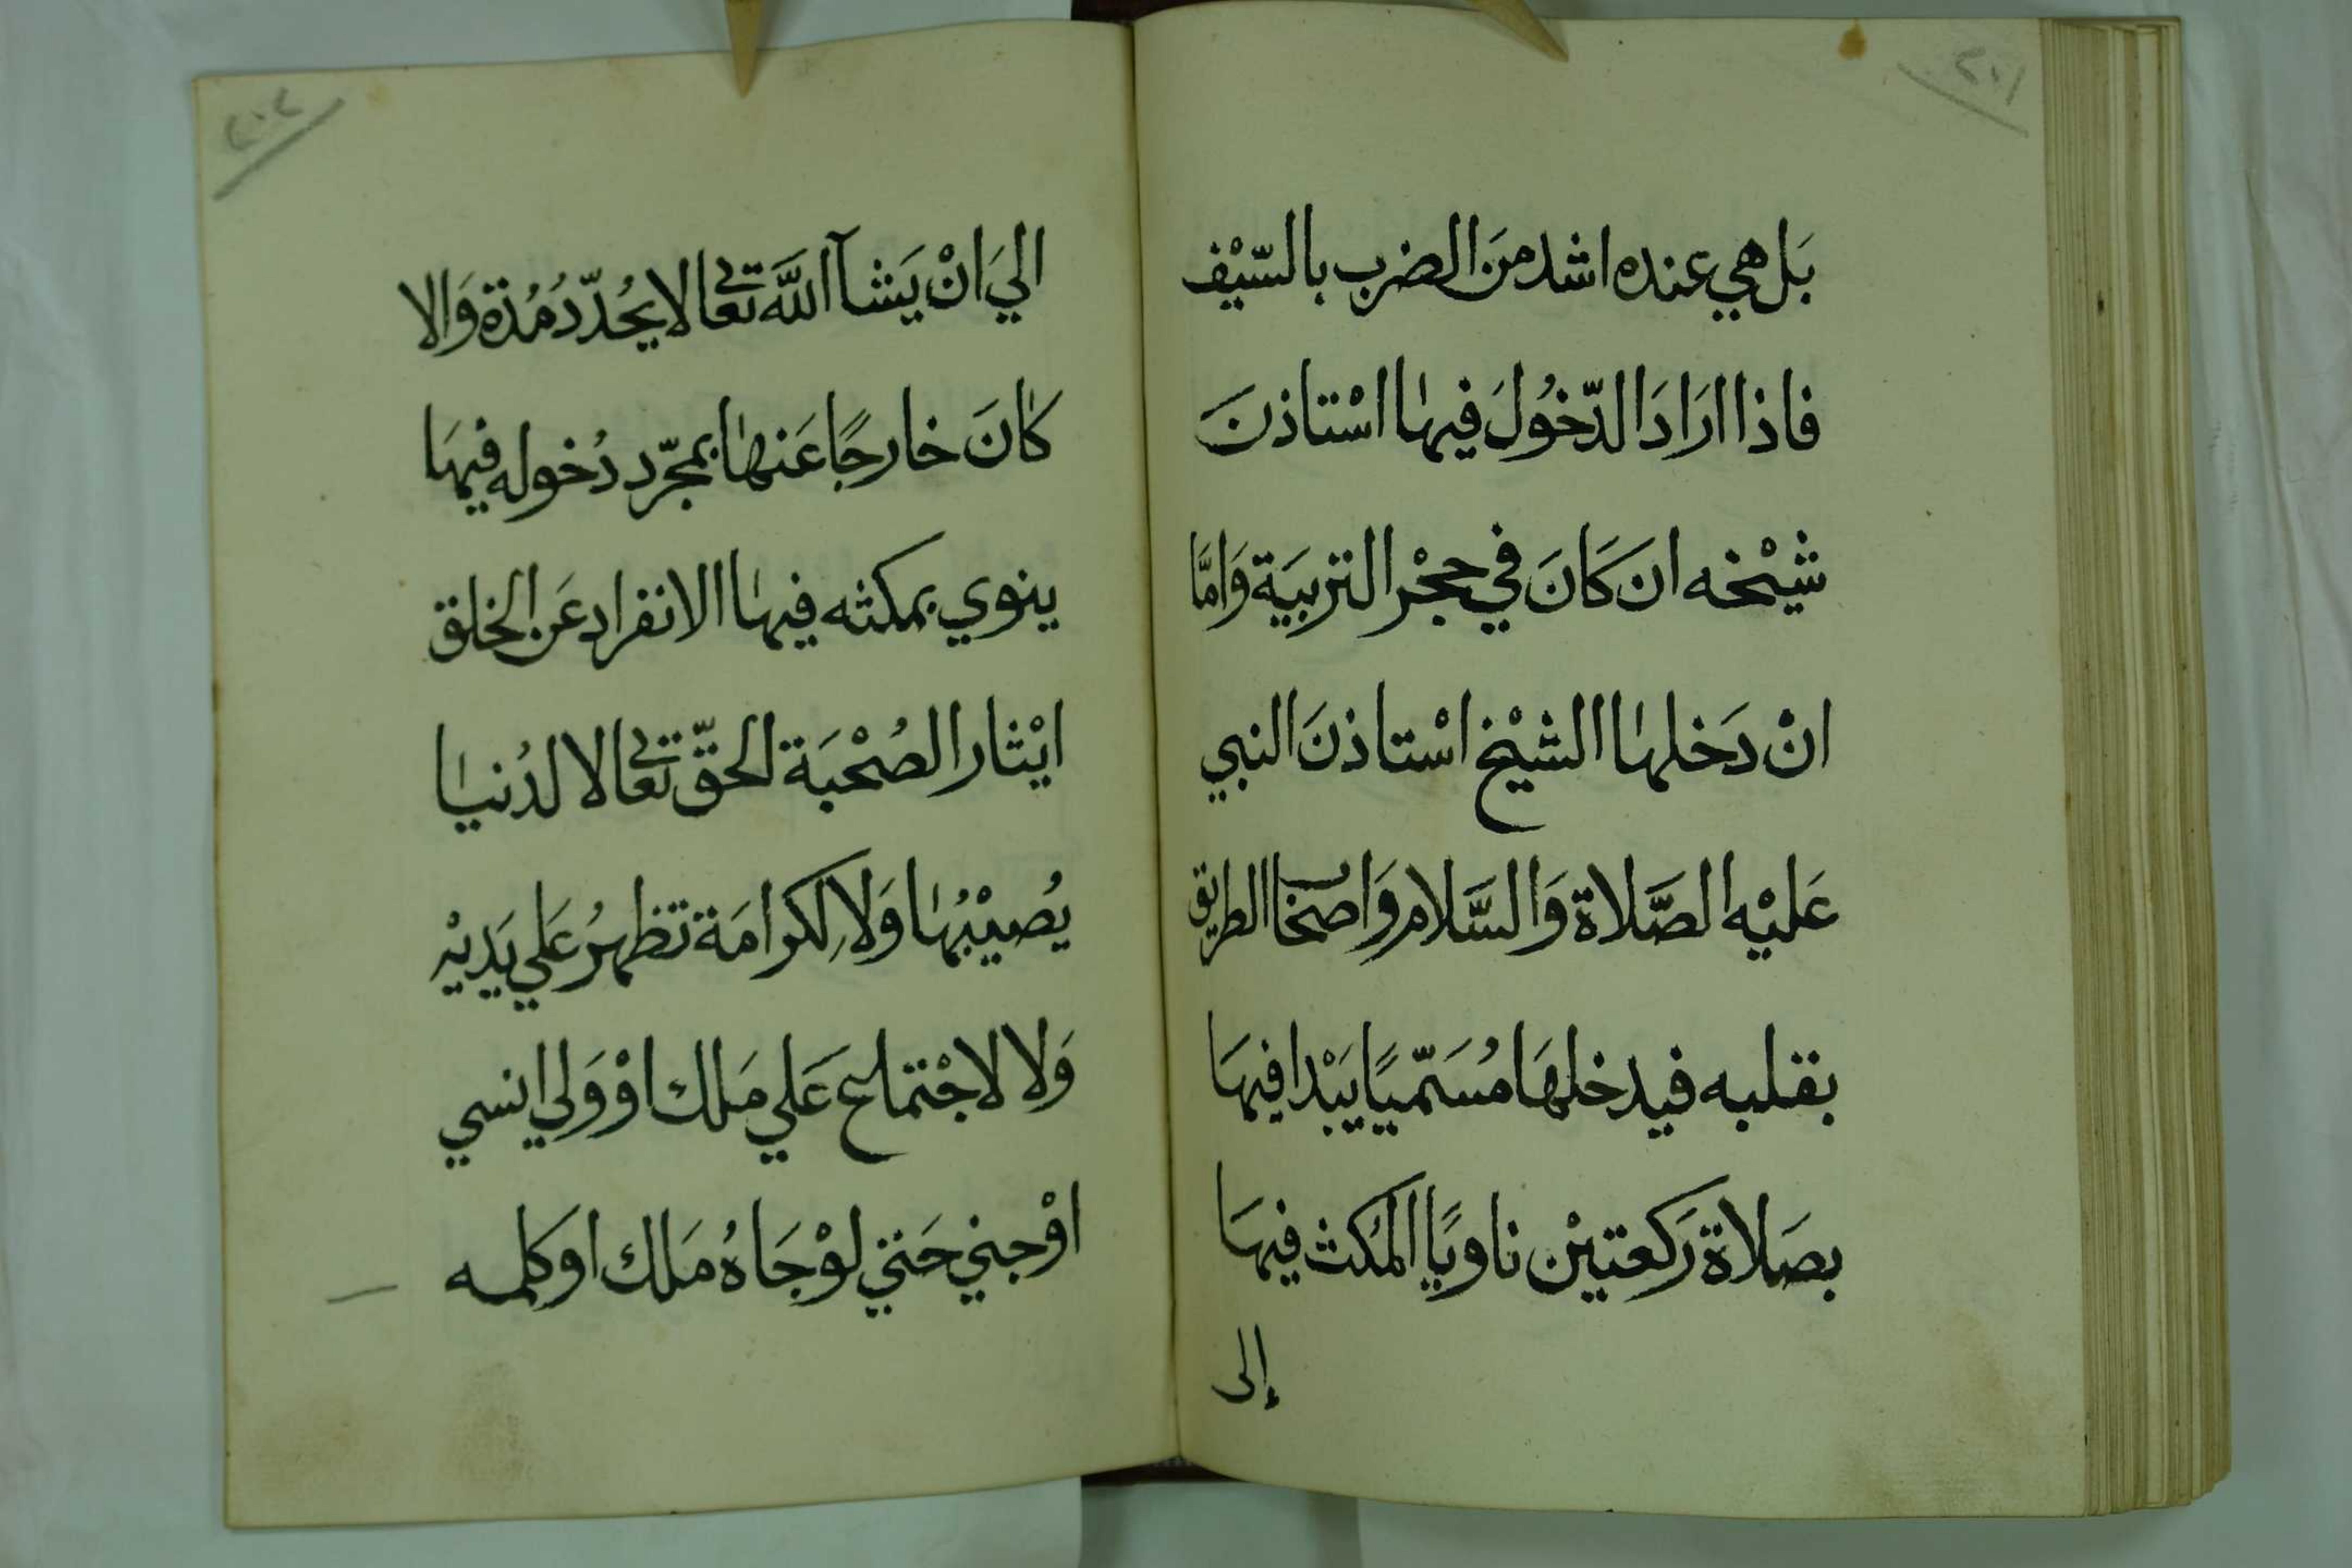 ٢٠١
بَل هي عنده اشد مَن الضرب بالسّيْف
فاذا ارَادَ الدّخُولَ فيهٰا اسْتاذنَ
شيْخه ان كَانَ في حجْر التربيَة وَامَّا
انْ دَخلهٰا الشيْخ اسْتاذنَ النبي
عَليْه الصَّلاة وَالسَّلام وَاصحَاب الطريق
بقلبه فيدخلهَا مُسَمّيًا يَبْدا فيهَا
بصَلاة رَكعتيْن ناويًا المكُث فيهَا
إلى
٢٠٢
اليَ انْ يَشآ اللَّه تعٰالى لا يحُدّدُ مُدة وَالا
كٰانَ خارجًا عَنهٰا بمجرّد دُخوله فيهَا
ينوي بمكثه فيهٰا الانفراد عَن الخلق
ايْثار الصُحْبَة الحقّ تعٰالى لا لدُنيٰا
يُصيْبُهٰا وَلا لِكرامَة تظهرُ عَلي يَديْه
وَلا لاجْتماع عَلي مَلك اوْ وَلي انسي
اوْ جني حَتي لوْ جَاهُ مَلك او كلمه